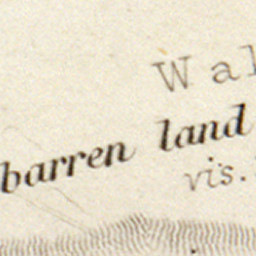 Wal
barren land
vis.